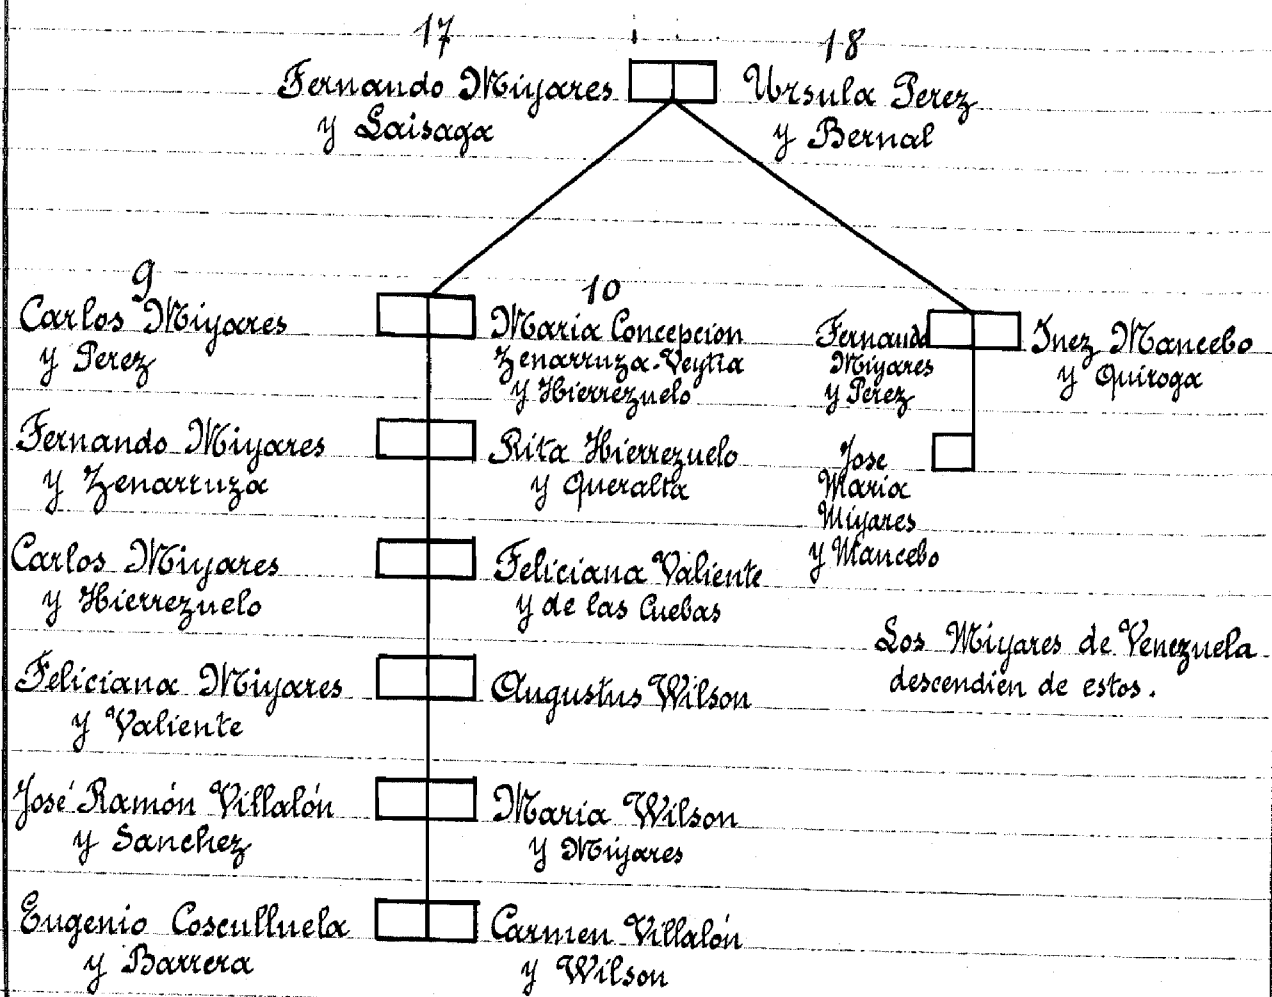 17
18
Fernando Miyares
y Laisaga
Ursula Perez
y Bernal
9
Carlos Miyares
y Perez
10
Maria Concepcion
Zenarruza-Veytia
y Hierrezuelo
Fernando
Miyares
y Perez
Inez Mancebo
y Quiroga
Fernando Miyares
y Zenarruza
Rita Hierrezuelo
y Queralta
Jose
Maria
Miyares
y Mancebo
Carlos Miyares
y Hierrezuelo
Feliciana Valiente
y de las Cuebas
Los Miyares de Venezuela
descendien de estos.
Feliciana Miyares
y Valiente
Augustus Wilson
José Ramón Villalón
y Sanchez
Maria Wilson
y Miyares
Eugenio Cosculluela
y Barrera
Carmen Villalón
y Wilson